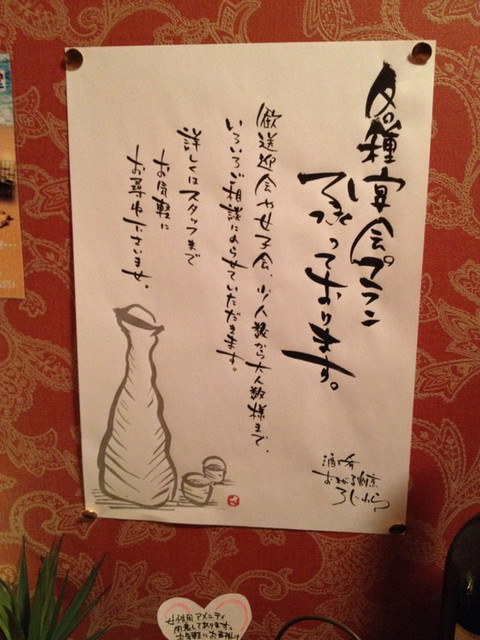 各種宴会プラン
承っております。
歓送迎会や女子会、少人数から大人数様まで、
いろいろご相談にのらせていただきます。
詳しくはスタッフまで
お気軽に
お尋ね下さいませ。
女性用アメニティ
用意しております。
お気軽にお声掛け